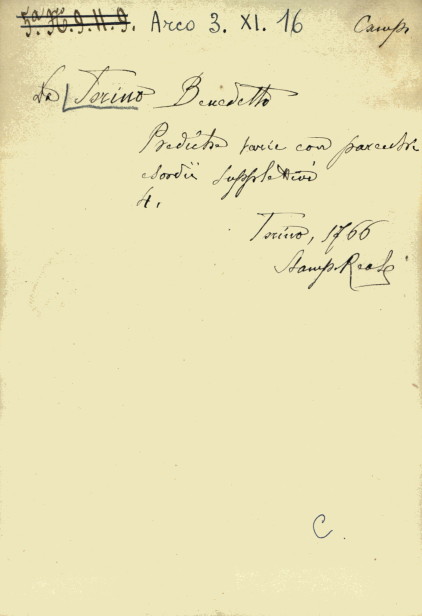 5ª N.º 9.11.9. Arco 3. XI. 16 Camp
Da Torino Benedetto
Prediche varie con parecchi
esordii suppletivi
4.
Torino, 1766
Stamp. Reale
C.